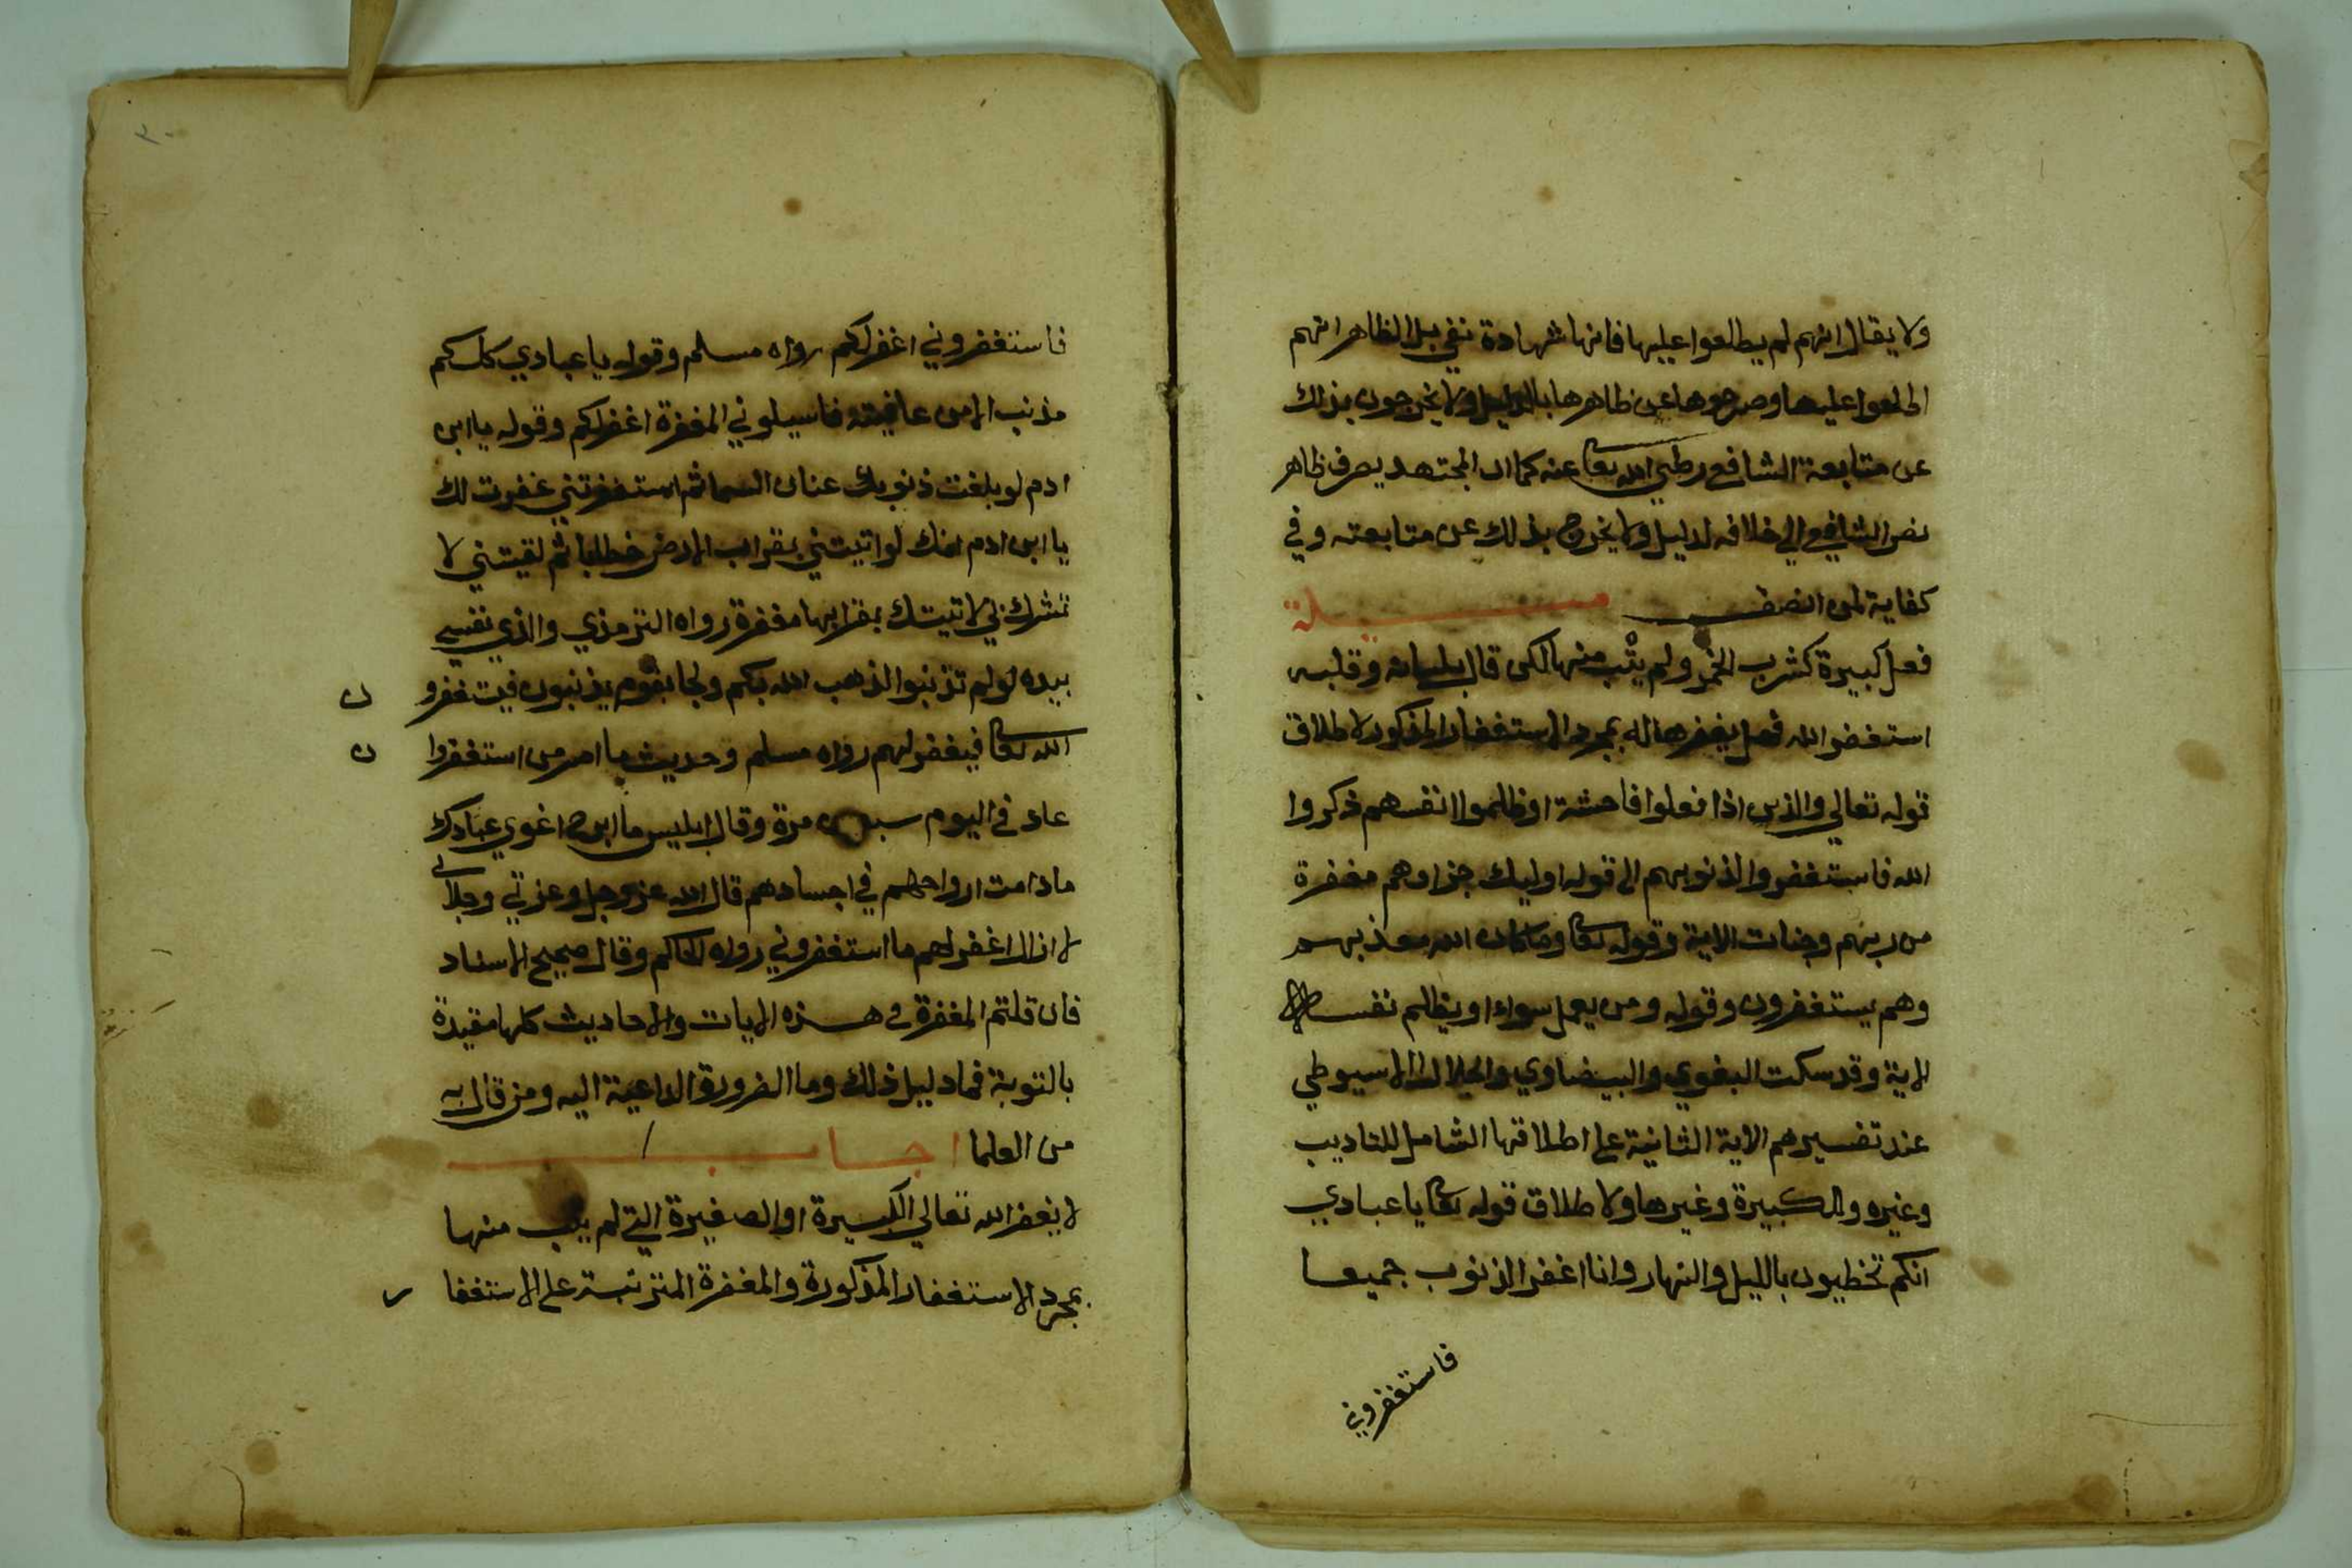 ولا يقال انهم لم يطلعوا عليها فانها شهادة نفي بلا الظاهر انهم
اطلعوا عليها وصرحوها عن ظاهرها بالدليل ولا يخرجون بذلك
عن متابعة الشافع رطي الله تعا عنه كما ان المجتهد يصرف ظاهر
نص الشافعي الي خلافه لدليل ولا يخرج بذلك عن متابعته وفي
كفاية لمن انصف مسيلة
فعل كبيرة كشرب الخمر ولم يتب منها لكن قال بلسانه وقلبه
استغفر الله فهل يغفرها له بمجرد الاستغفار المذكور لاطلاق
قوله تعالي والذين اذا فعلوا فاحشة او ظلموا انفسهم ذكروا
الله فاستغفروا لذنوبهم الى قوله اوليك جزاوهم مغفرة
من ربهم وجنات الاية وقوله تعا وما كان الله معذبهم
وهم يستغفرون وقوله ومن يعمل سواء او يظلم نفسه
الاية وقد سكت البغوي والبيضاوي والجلال الاسيوطي
عند تفسيرهم الاية الثانية على اطلاقها الشامل للتاديب
وغيره والكبيرة وغيرها ولا طلاق قوله تعا يا عبادي
انكم تخطيون بالليل والنهار وانا اغفر الذنوب جميعا
فاستغفروني
٣٠
فاستغفروني اغفرلكم رواه مسلم وقوله يا عبادي كلكم
مذنب الا من عافيته فاسيلوني المغفرة اغفرلكم وقوله يا ابن
ادم لو بلغت ذنوبك عنان السما ثم استغفرتني غفرت لك
يا ابن ادم انك لو اتيتني بقراب الارض خطايا ثم لقيتني لا
تشرك بي لاتيتك بقرابها مغفرة رواه الترمذي والذي نفسي
بيده لو لم تذنبوا لذهب الله بكم ولجا بقوم يذنبون فيستغفرو ن
الله تعا فيغفر لهم رواه مسلم وحديث ما امر من استغفروا ن
عاد في اليوم سبعين مرة وقال ابليس ما ابرح اغوي عبادك
ما دامت ارواحهم في اجسادهم قال الله عز وجل وعزتي وجلالي
لا ازال اغفر لهم ما استغفروني رواه الحاكم وقال صحيح الاسناد
فان قلتم المغفرة في هذه الايات والاحاديث كلها مقيدة
بالتوبة فما دليل ذلك وما الضرورة الداعية اليه ومن قال به
من العلما اجاب
لا يغفر الله تعالي الكبيرة او الصغيرة التي لم يتب منها
بمجرد الاستغفار المذكورة والمغفرة المترتبة على الاستغفا ر